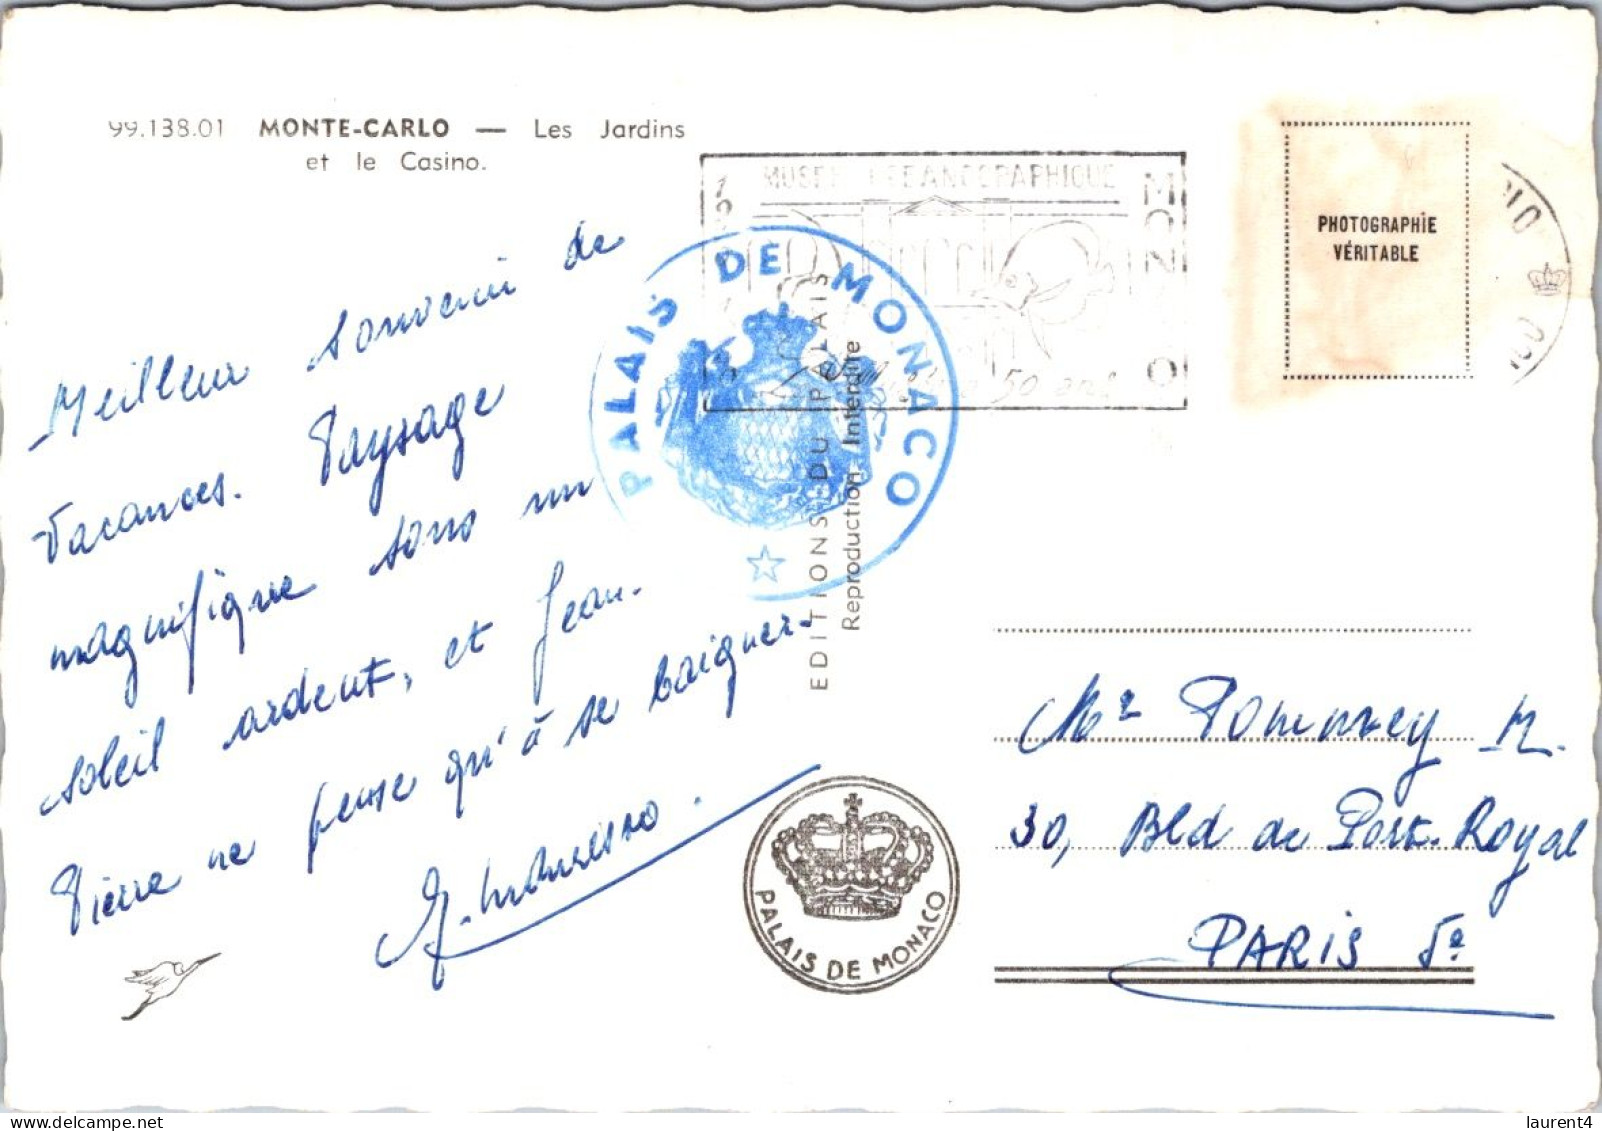 99.138.01 MONTE-CARLO — Les Jardins
et le Casino.
Meilleur souvenir de
vacances. Paysage
magnifique sous un
soleil ardent, et Jean-
Pierre ne pense qu'à se baigner
MUSEE OCEANOGRAPHIQUE
MONACO
50 ans
PALAIS DE MONACO
EDITIONS DU PALAIS
Reproduction Interdite
PHOTOGRAPHIE
VÉRITABLE
Mr Pommrey M.
30, Bld de Port-Royal
PARIS 5e
PALAIS DE MONACO
laurent4